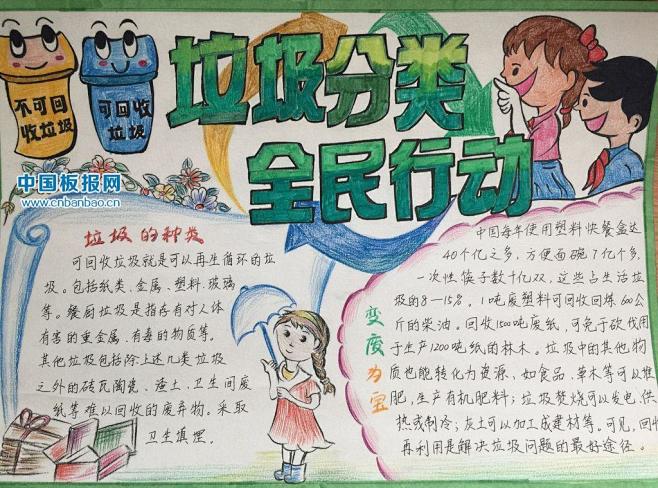 不可回
收垃圾
可回收
垃圾
垃圾分类
全民行动
中国板报网
www.cnbanbao.cn
垃圾的种类
可回收垃圾就是可以再生循环的垃
圾。包括纸类、金属、塑料、玻璃
等。餐厨垃圾是指存有对人体
有害的重金属、有毒的物质等。
其他垃圾包括除上述几类垃圾
之外的砖瓦陶瓷、渣土、卫生间废
纸等难以回收的废弃物。采取
卫生填埋。
变废为宝
中国每年使用塑料快餐盒达
40个亿之多,方便面碗7亿个多,
一次性筷子数十亿双,这些占生活垃
圾的8—15%。1吨废塑料可回收回炼600公
斤的柴油。回收1500吨废纸,可免于砍伐用
于生产1200吨纸的林木。垃圾中的其他物
质也能转化为资源、如食品、草木等可以堆
肥,生产有机肥料;垃圾焚烧可以发电、供
热或制冷;灰土可以加工成建材等。可见,回收
再利用是解决垃圾问题的最好途径。